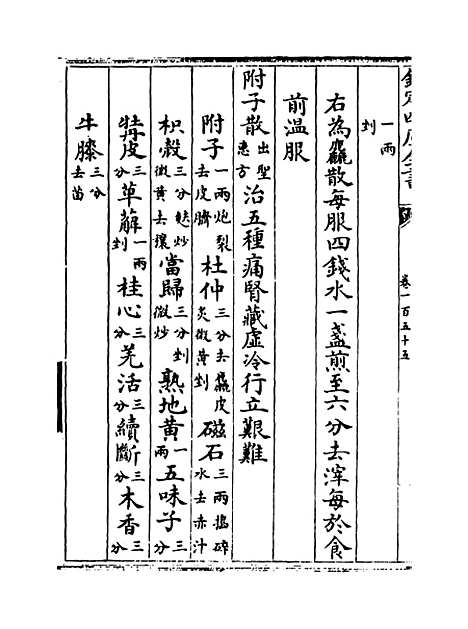 欽定四庫全書
卷一百五十五
一兩
剉
右為麤散每服四錢水一盞煎至六分去滓每於食
前温服
附子散出聖惠方治五種痛腎藏虛冷行立艱難
附子一兩炮裂去皮臍杜仲三分去麤皮炙微黄剉磁石三兩搗碎水去赤汁
枳殼三分麩炒微黄去瓤當歸三分剉微炒熟地黄一兩五味子三分
牡丹皮三分萆薢一兩剉桂心三分羌活三分續斷三分木香三分
牛膝三分去苗